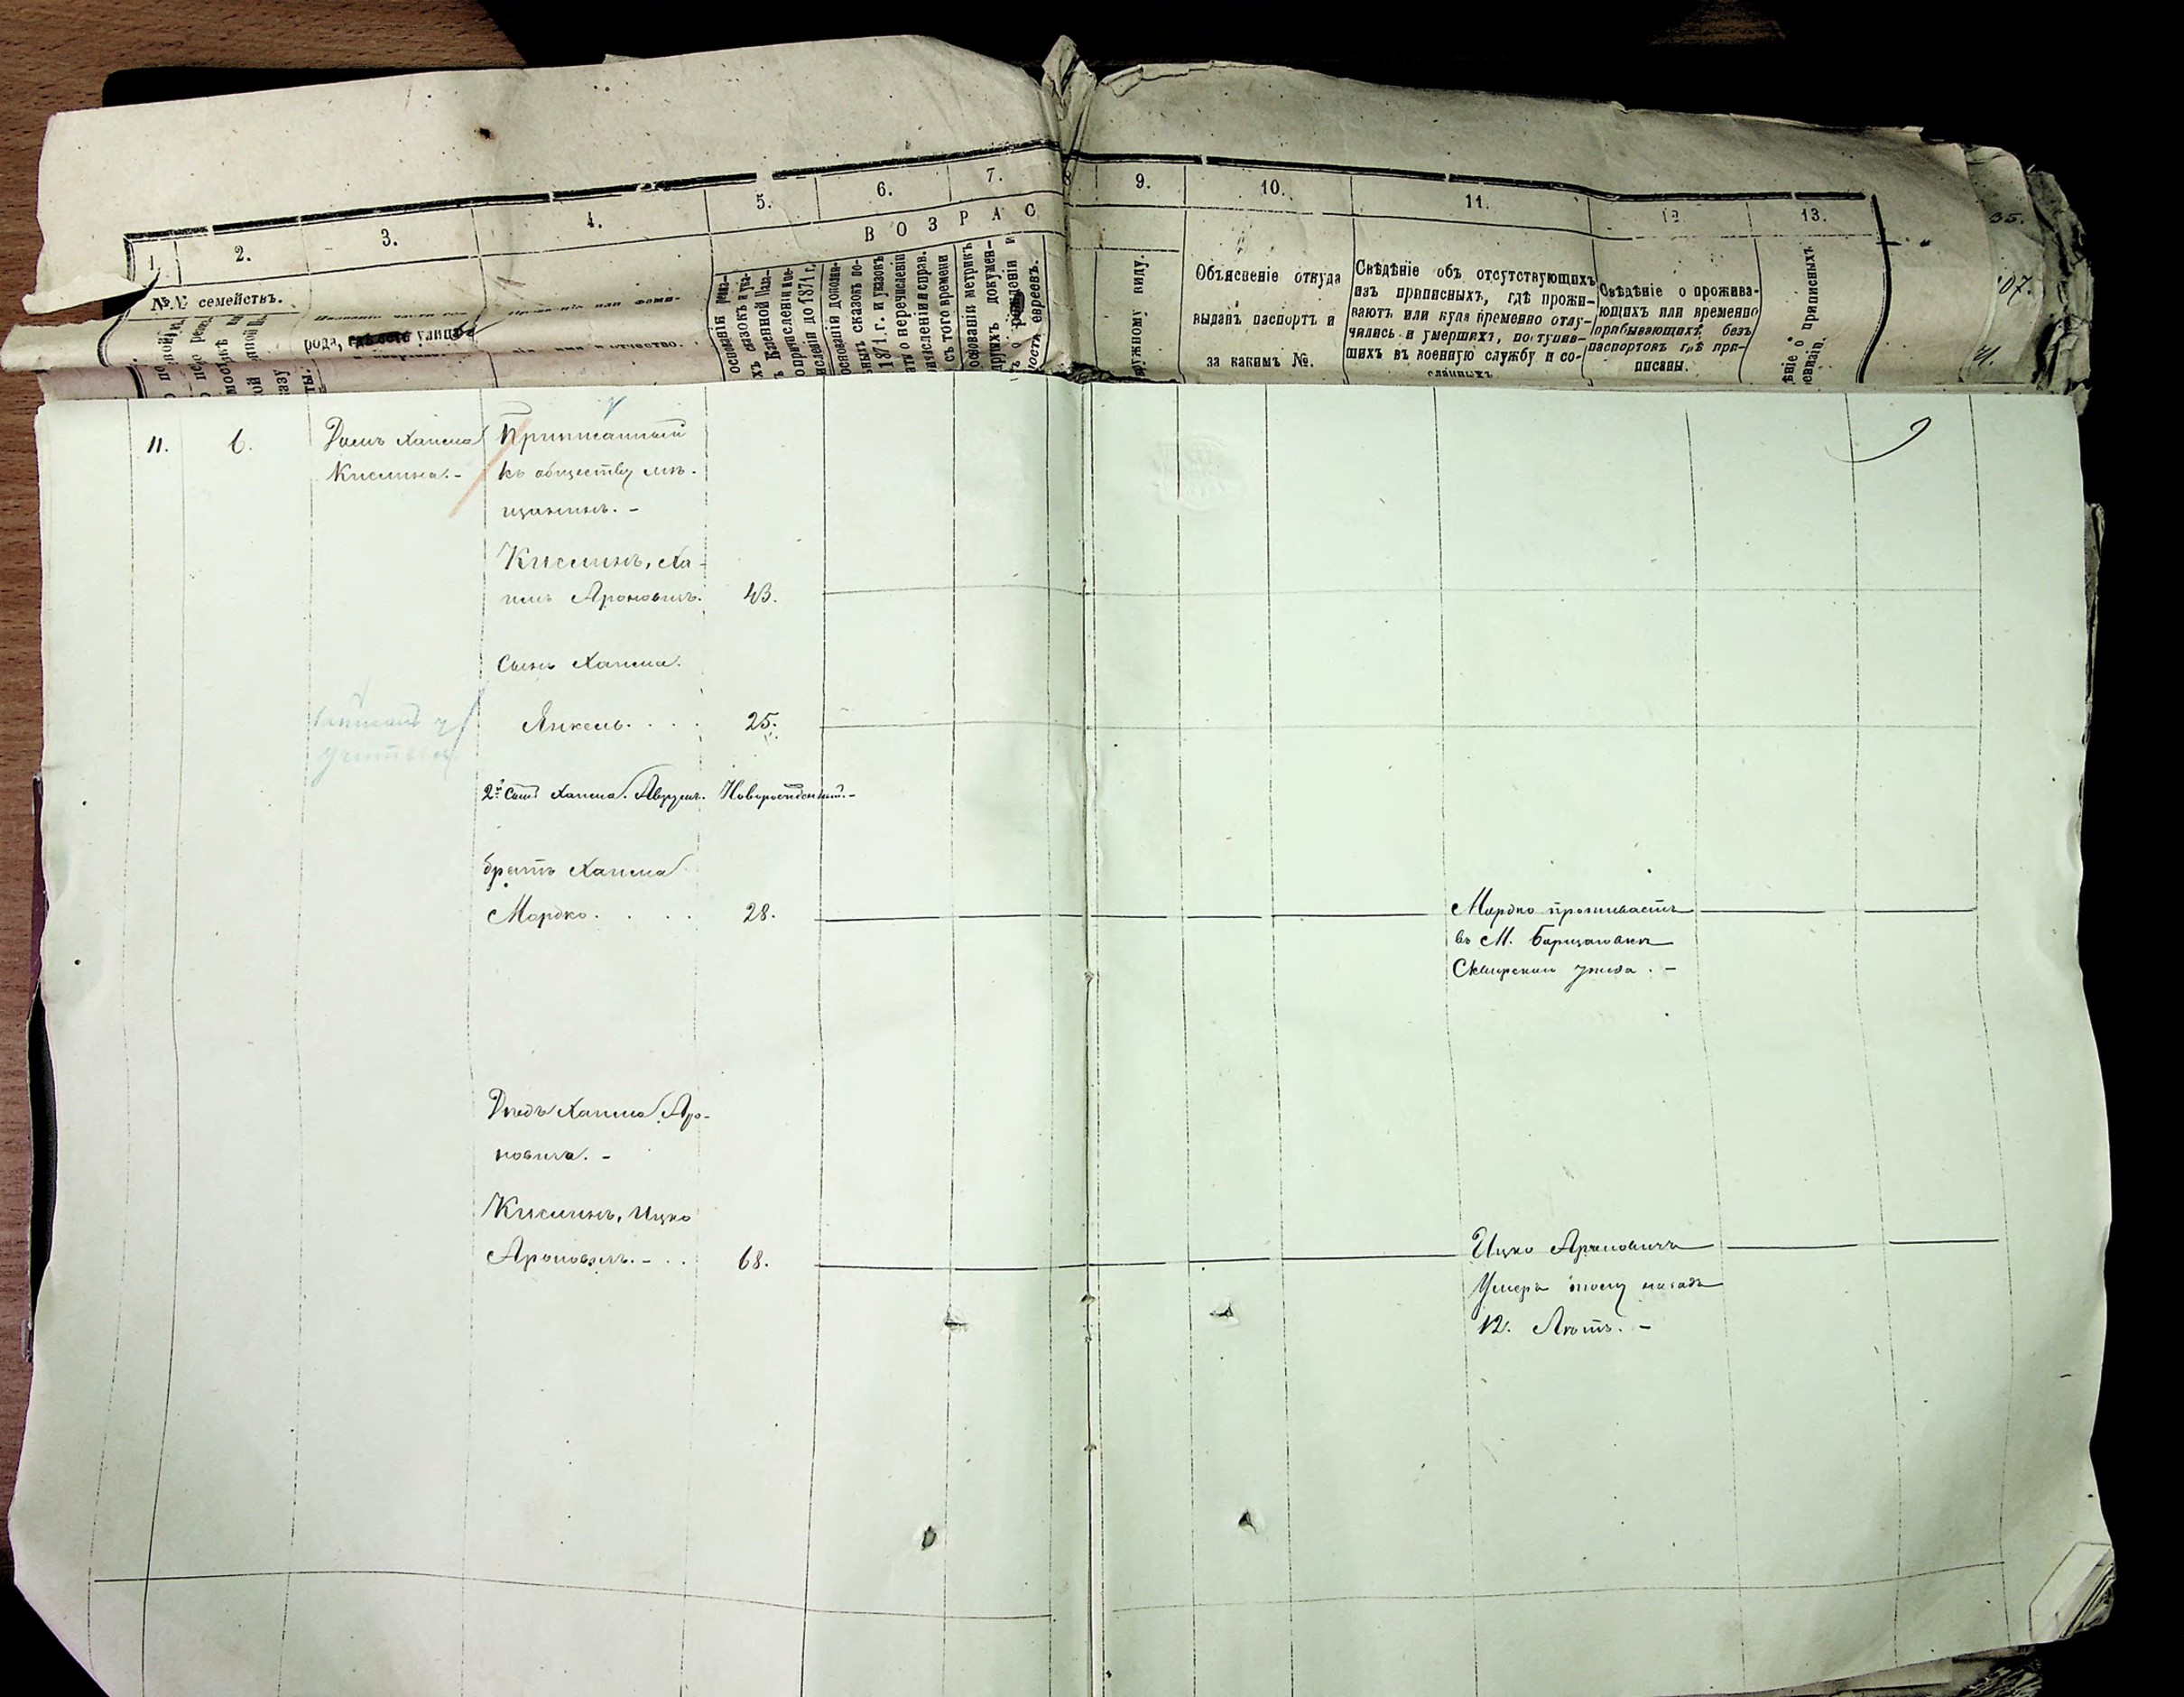 1.
2.
3.
4.
5.
6.
7.
9.
10.
11.
12
13.
35.
ВОЗРАС
№№ семействъ.
рода, улицѣ
имя и отчество.
1871 г. и указовъ
ность евреевъ.
наружному виду.
Объясненіе откуда
выданъ паспортъ и
за какимъ №.
Свѣдѣніе объ отсутствующихъ
изъ приписныхъ, гдѣ прожи-
ваютъ или куда временно отлу-
чились и умершихъ, поступив-
шихъ въ военную службу и со-
сланныхъ
Свѣдѣніе о прожива-
ющихъ или временно
прибывающихъ, безъ
паспортовъ гдѣ при-
писаны.
о приписныхъ
107.
11.
6.
Домъ Хаима
Кислина. -
Приписанный
къ обществу мѣ-
щанинъ. -
Кислинъ, Ха-
имъ Ароновичъ.
43.
Сынъ Хаима.
Янкель. . . .
25.
2й Сынъ Хаима. Аврумъ. Новорожденный. -
братъ Хаима
Мордко. . . . .
28.
Мордко проживаетъ
въ М. Борщаговкѣ
Сквирскаго уѣзда. -
Дѣдъ Хаима Аро-
новича. -
Кислинъ, Ицко
Ароновичъ. - . .
68.
Ицко Ароновичъ
Умеръ тому назадъ
12. Лѣтъ. -